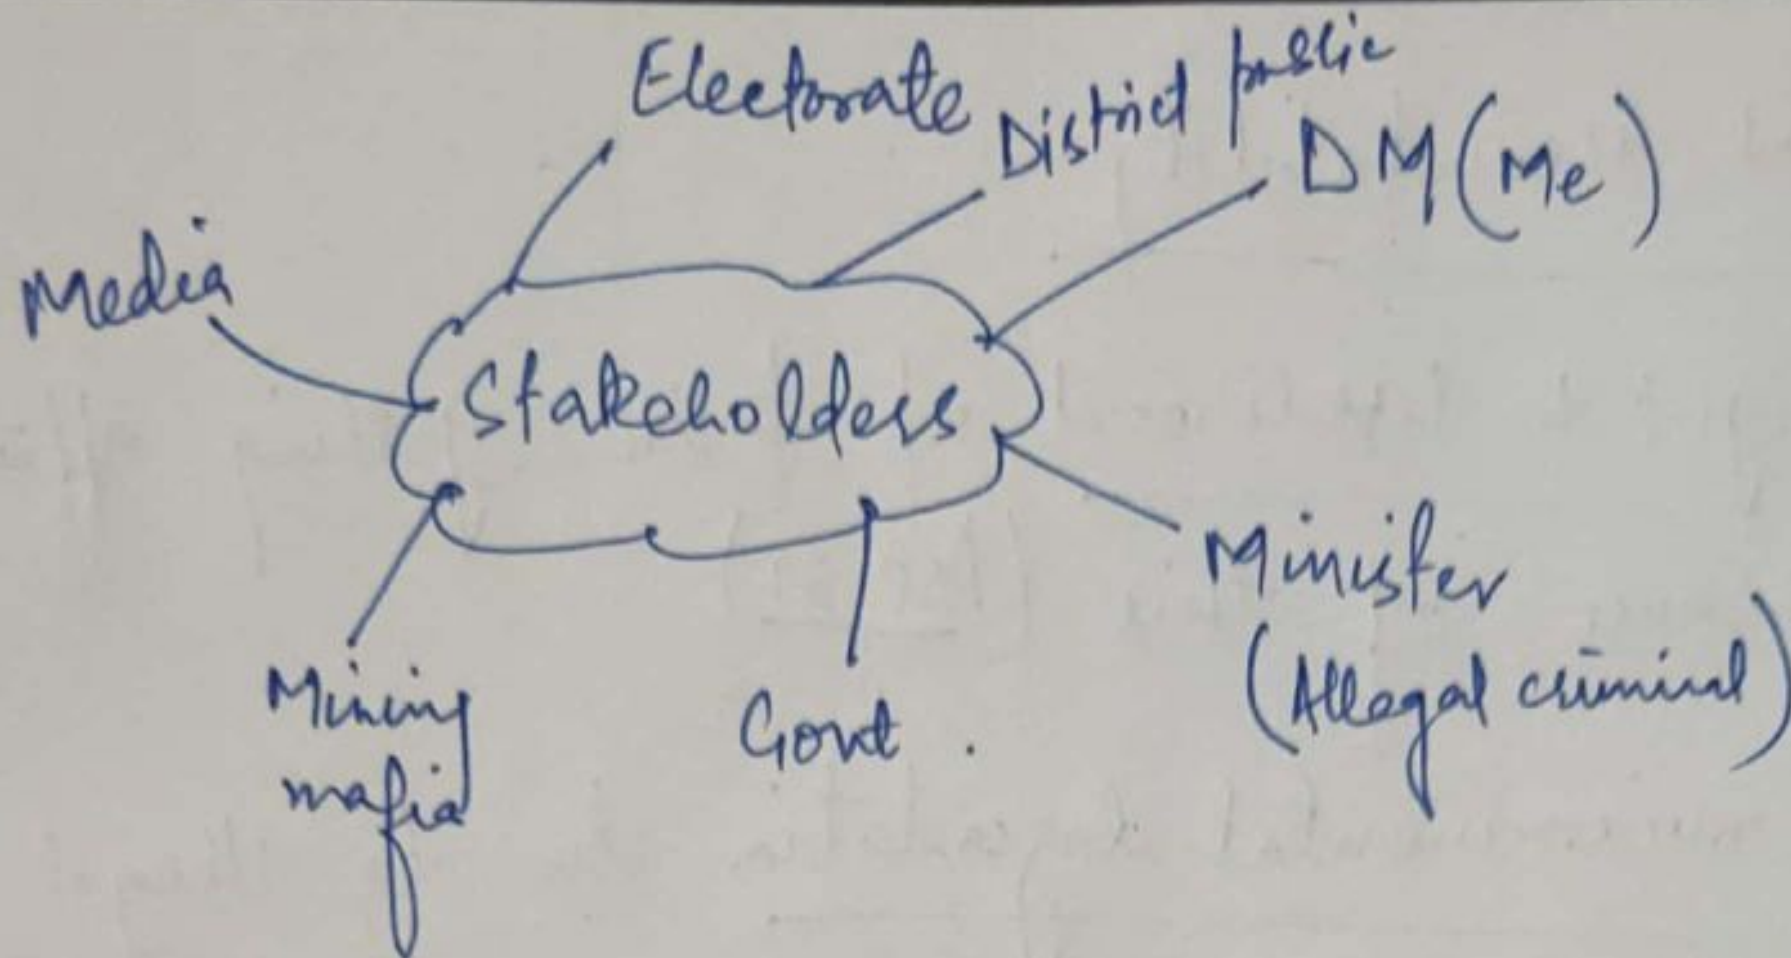 Electorate
District public
DM (Me)
Media
Stakeholders
Minister
(Allegal criminal)
Mining
mafia
Govt.